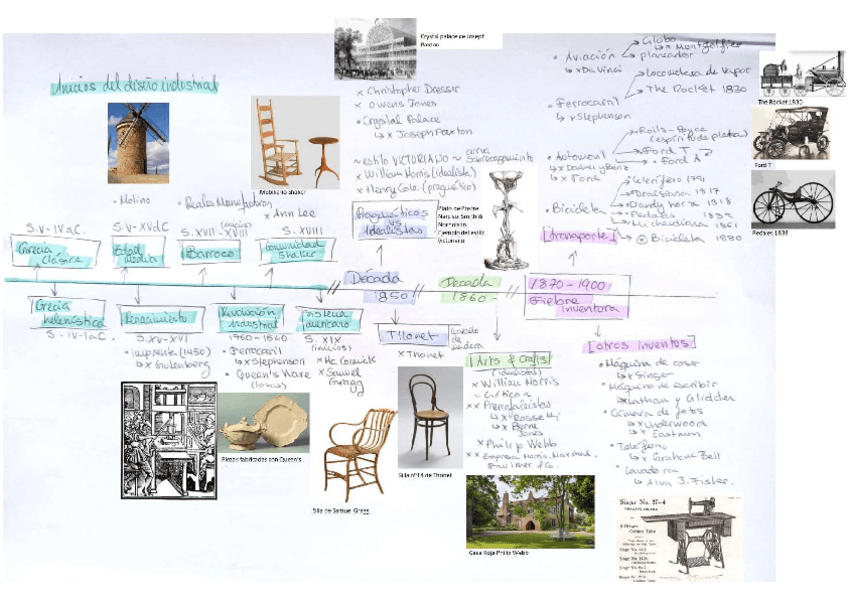 Inicios del diseño industrial
Crystal palace de Joseph
Paxton
x Christopher Dresser
x Owens Jones
• Crystal Palace
↳ x Joseph Paxton
~ Estilo VICTORIANO ~
x William Morris (idealista)
x Henry Cole. (pragmático)
Pragmáticos
Idealistas
Ejemplo del estilo
Victoriano
• Aviación
Globo
↳ x Montgolfier
planeador
↳ x Da Vinci
• Ferrocarril
Locomotora de vapor
The Rocket 1830
↳ x Stephenson
• Automóvil
Rolls-Royce
(espíritu de plata)
Ford T
Ford A
↳ x Ford
• Bicicleta
Celerífero 1791
Draisiana 1817
Dandy horse 1818
Pedales 1839
Michaudiana 1861
Bicicleta 1880
[transporte]
The Rocket 1830
Ford T
Pedales 1839
• Molino
Mobiliario shaker
x Ann Lee
S.V-IV a.C.
Grecia
clásica
S.V-XV d.C
Edad
Media
S. XVII - XVIII
Barroco
S. XVIII
Comunidad
Shaker
Década
1850
Década
1860
1870-1900
Fiebre
inventora
Grecia
helenística
S - IV-I a.C.
Renacimiento
S. XV-XVI
• imprenta (1450)
↳ x Gutenberg
Revolución
industrial
1760-1840
• Ferrocarril
↳ x Stephenson
• Queen's Ware
Sistema
americano
S. XIX
(inicios)
x Mc Cormick
x Samuel
Gragg
Thonet
x Thonet
Arts & Crafts
(idealistas)
x William Morris
xx Prerrafaelistas
↳ x Rossetti
↳ x Burne
Jones
x Philip Webb
xx Empresa Morris, Marshall,
Faulkner & Co.
[otros inventos]
• Máquina de coser
↳ x Singer
• Máquina de escribir
• Cámara de fotos
↳ x Underwood
x Eastman
• Teléfono
↳ x Graham Bell
• Lavadora
↳ x Alva J. Fisher.
Piezas fabricadas con Queen's
Silla de Samuel Gragg
Silla nº14 de Thonet
Casa Roja Philip Webb